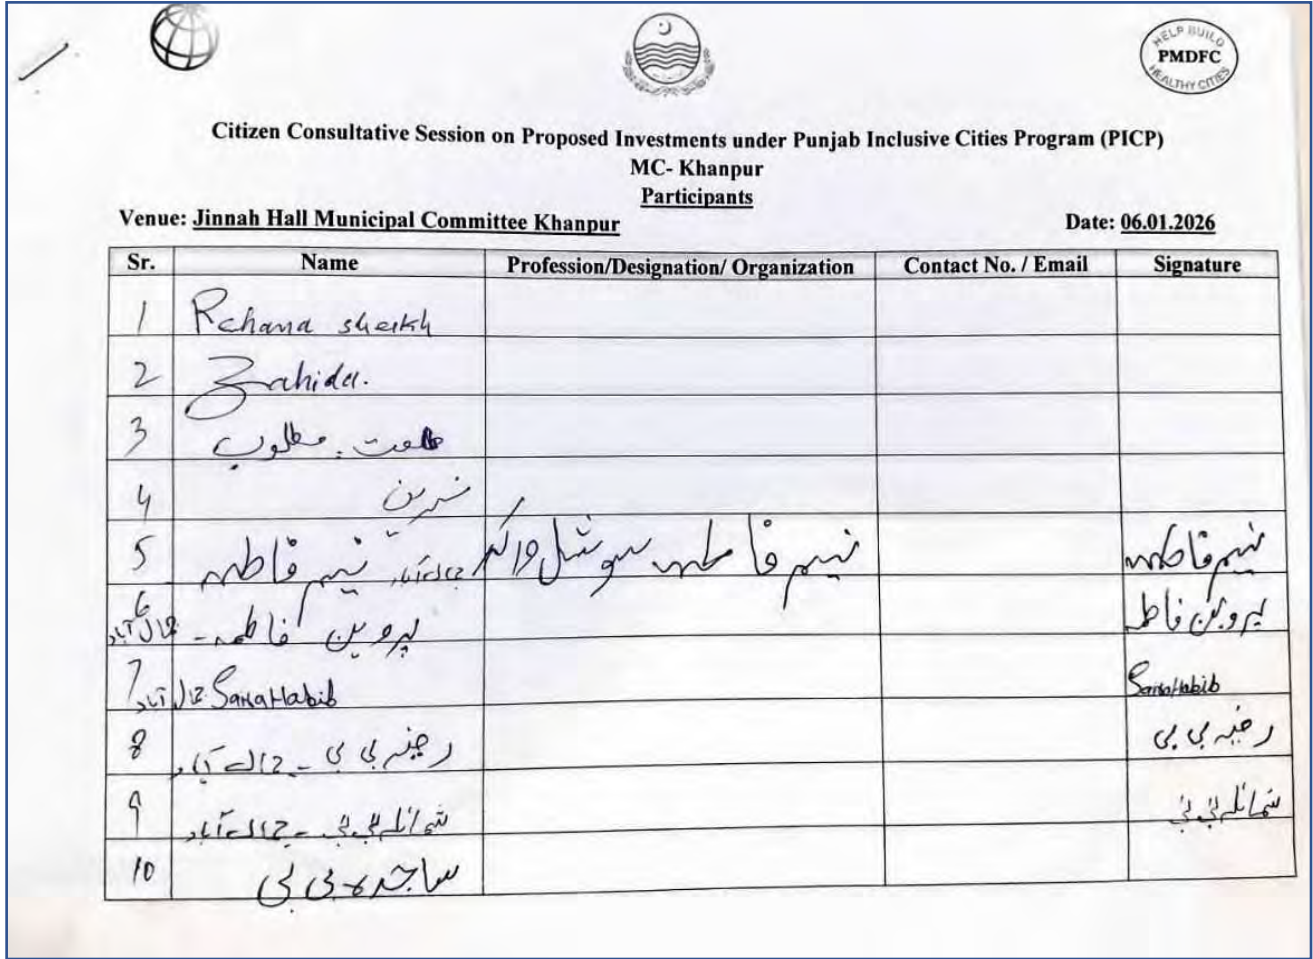 HELP BUILD
PMDFC
HEALTHY CITIES
Citizen Consultative Session on Proposed Investments under Punjab Inclusive Cities Program (PICP)
MC- Khanpur
Participants
Venue: Jinnah Hall Municipal Committee Khanpur Date: 06.01.2026
Sr. Name Profession/Designation/ Organization Contact No. / Email Signature
1 Rehana sheikh
2 Zahida.
3 طلعت مطلوب
4 نسرین
5 نسیم فاطمہ نسیم فاطمہ سوشل ورکر نسیم فاطمہ
6 پروین فاطمہ پروین فاطمہ
7 Sana Habib Sana Habib
8 رضیہ بی بی رضیہ بی بی
9 شمائلہ بی بی شمائلہ بی بی
10 ساجدہ بی بی